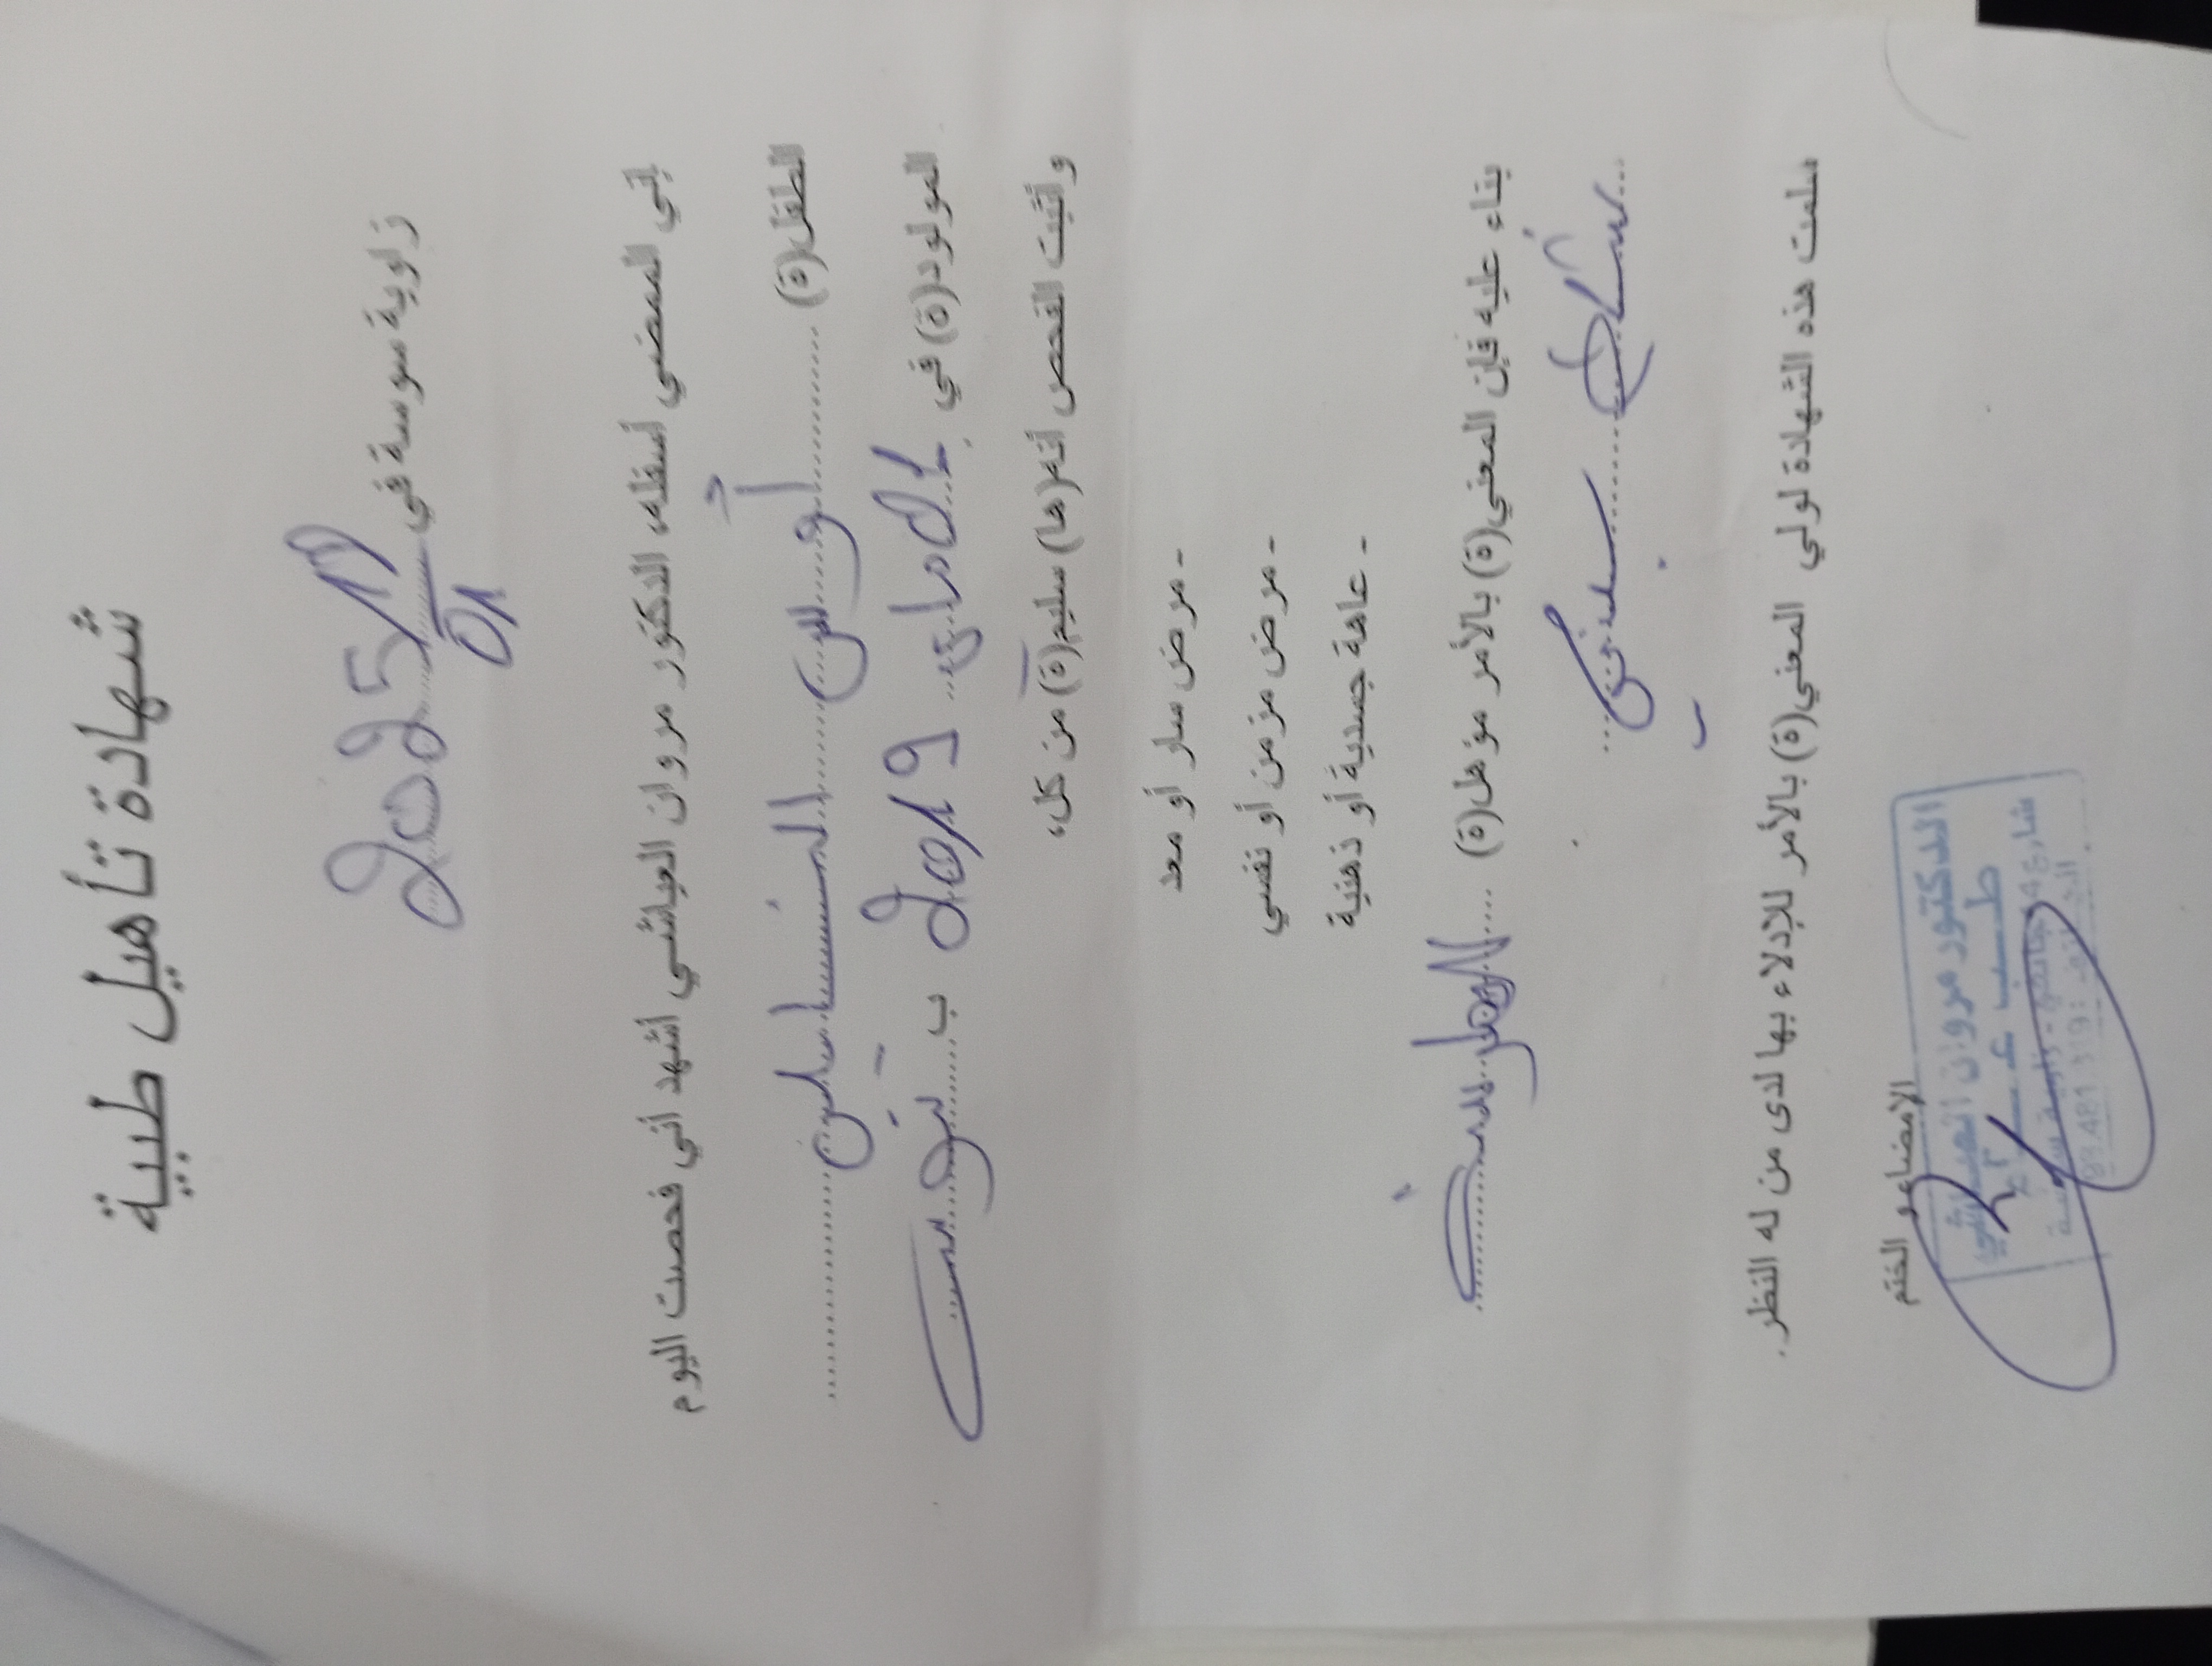 شهادة تأهيل طبية
زاوية سوسة في 2025/
01
إني الممضي أسفله، الدكتور مروان العياشي أشهد أني فحصت اليوم
الطفل(ة) أوس
المولود(ة) في 21 ماي 2019 ب تونس
وأثبت الفحص أنه(ها) سليم(ة) من كل،
- مرض سار أو معد
- مرض مزمن أو نفسي
- عاهة جسدية أو ذهنية
بناء عليه فإن المعني(ة) بالأمر مؤهل(ة)
سلمت هذه الشهادة لولي المعني(ة) بالأمر للإدلاء بها لدى من له النظر.
الامضاء و الختم
الدكتور مروان العياشي
طب عام